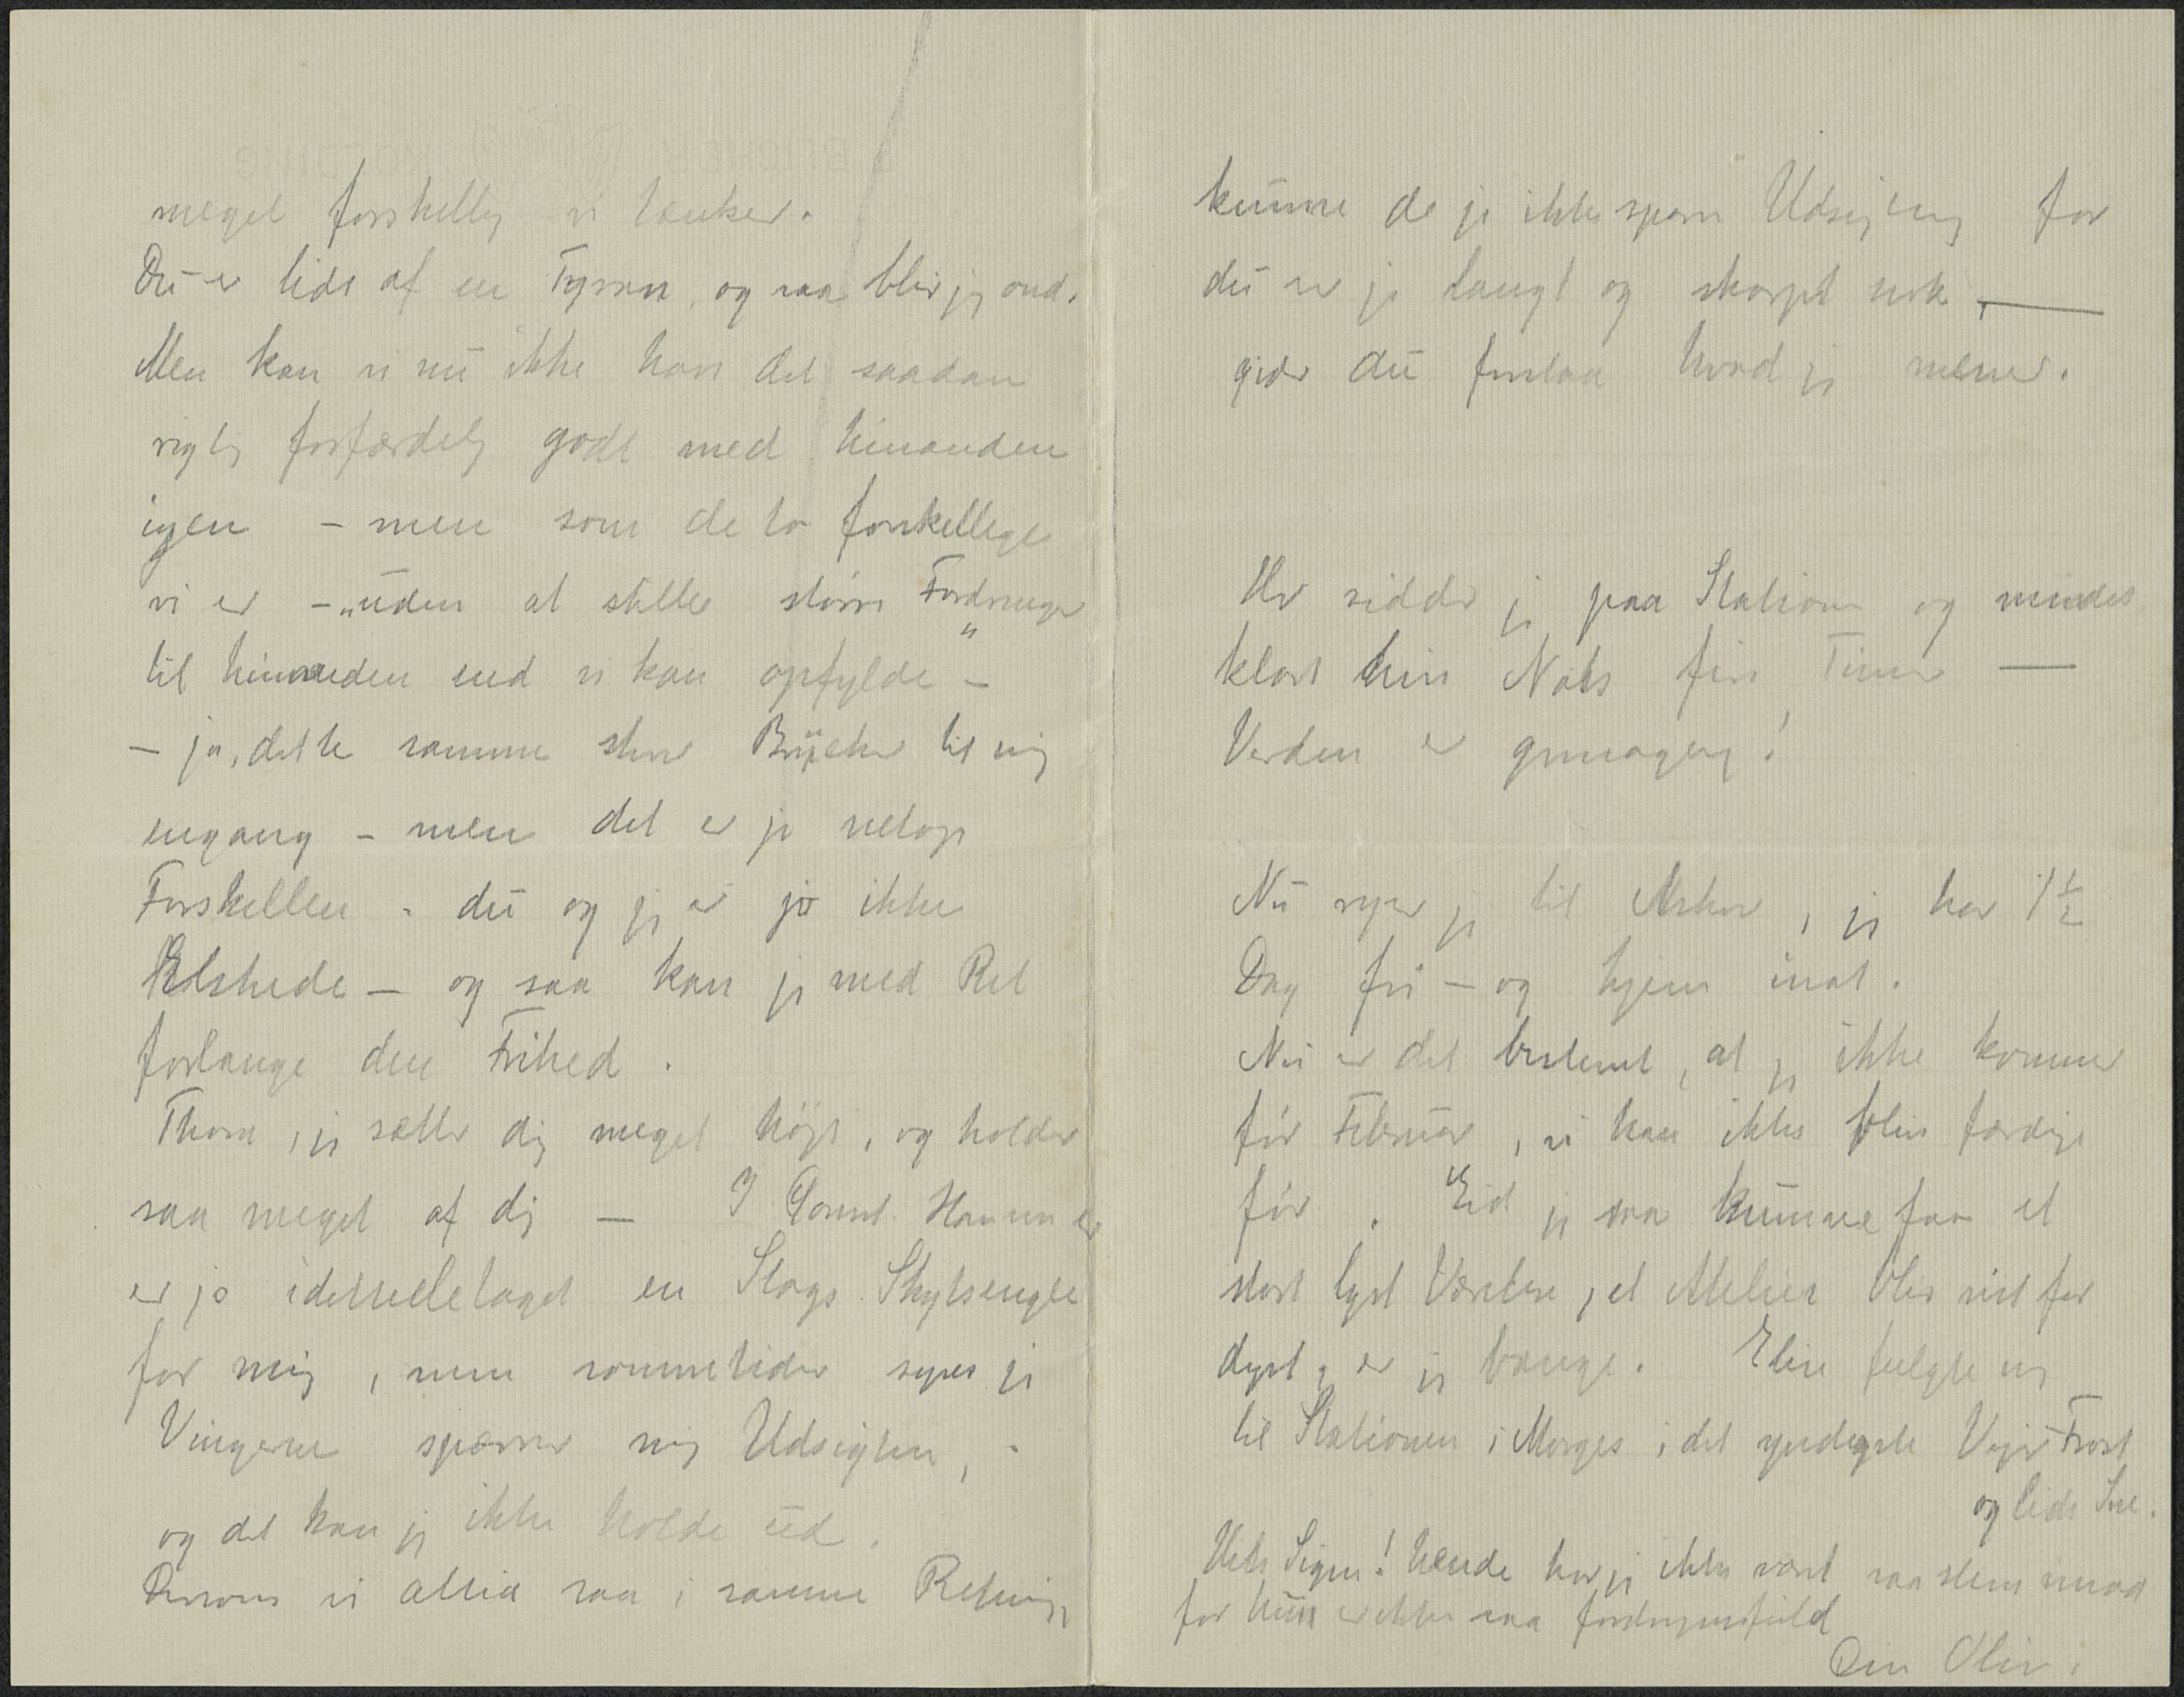 meget forskellig vi tænker.
Du er lidt af en Tyran, og saa blir jeg ond.
Men kan vi nu ikke have det saadan
rigtig forfærdelig godt med hinanden
igen – men som de to forskellige
vi er – „uden at stille større Fordringer
til hinanden end vi kan opfylde" –
– ja, dette samme skrev til mig
engang – men det er jo netop
Forskellen – du og jeg er jo ikke
Elskede – og saa kan jeg med Ret
forlange den Frihed.
Thora, jeg sætter dig meget højt, og holder
saa meget af dig – I Hansen er
er jo idetheletaget en Slags Skytsengle
for mig, men sommetider synes jeg
Vingerne spærrer mig Udsigten, –
og det kan jeg ikke holde ud.
Dersom vi altid saa i samme Retning,
kunne de jo ikke spærre Udsigten for
du ser jo langt og skarpt nok, —
gider du forstaa hvad jeg mener.
Her sidder jeg paa Stationen og mindes
klart hin Nats fire Timer —
Verden er grinagtig!
Nu rejser jeg til Askov, jeg har 1½
Dag fri – og hjem inat.
Nu er det bestemt, at jeg ikke kommer
før Februar, vi kan ikke blive færdige
før. Gid jeg saa kunne faa et
stort lyst Værelse, et Atelier blir vist for
dyrt, er jeg bange. Elise fulgte mig
til Stationen i Morges i det yndigste Vejr Frost
og lidt Sne.
Hils Signe! hende har jeg ikke været saa slem imod
for hun er ikke saa fordringsfuld
Din Oliv.